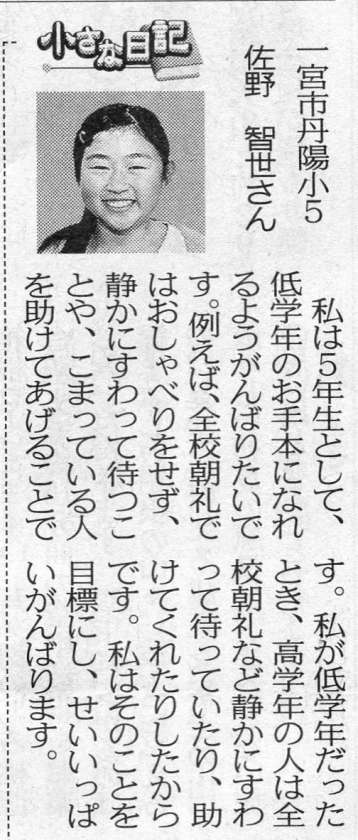 小さな日記
一宮市丹陽小5
佐野 智世さん
私は5年生として、
低学年のお手本になれ
るようがんばりたいで
す。例えば、全校朝礼で
はおしゃべりをせず、
静かにすわって待つこ
とや、こまっている人
を助けてあげることで
す。私が低学年だった
とき、高学年の人は全
校朝礼など静かにすわ
って待っていたり、助
けてくれたりしたから
です。私はそのことを
目標にし、せいいっぱ
いがんばります。